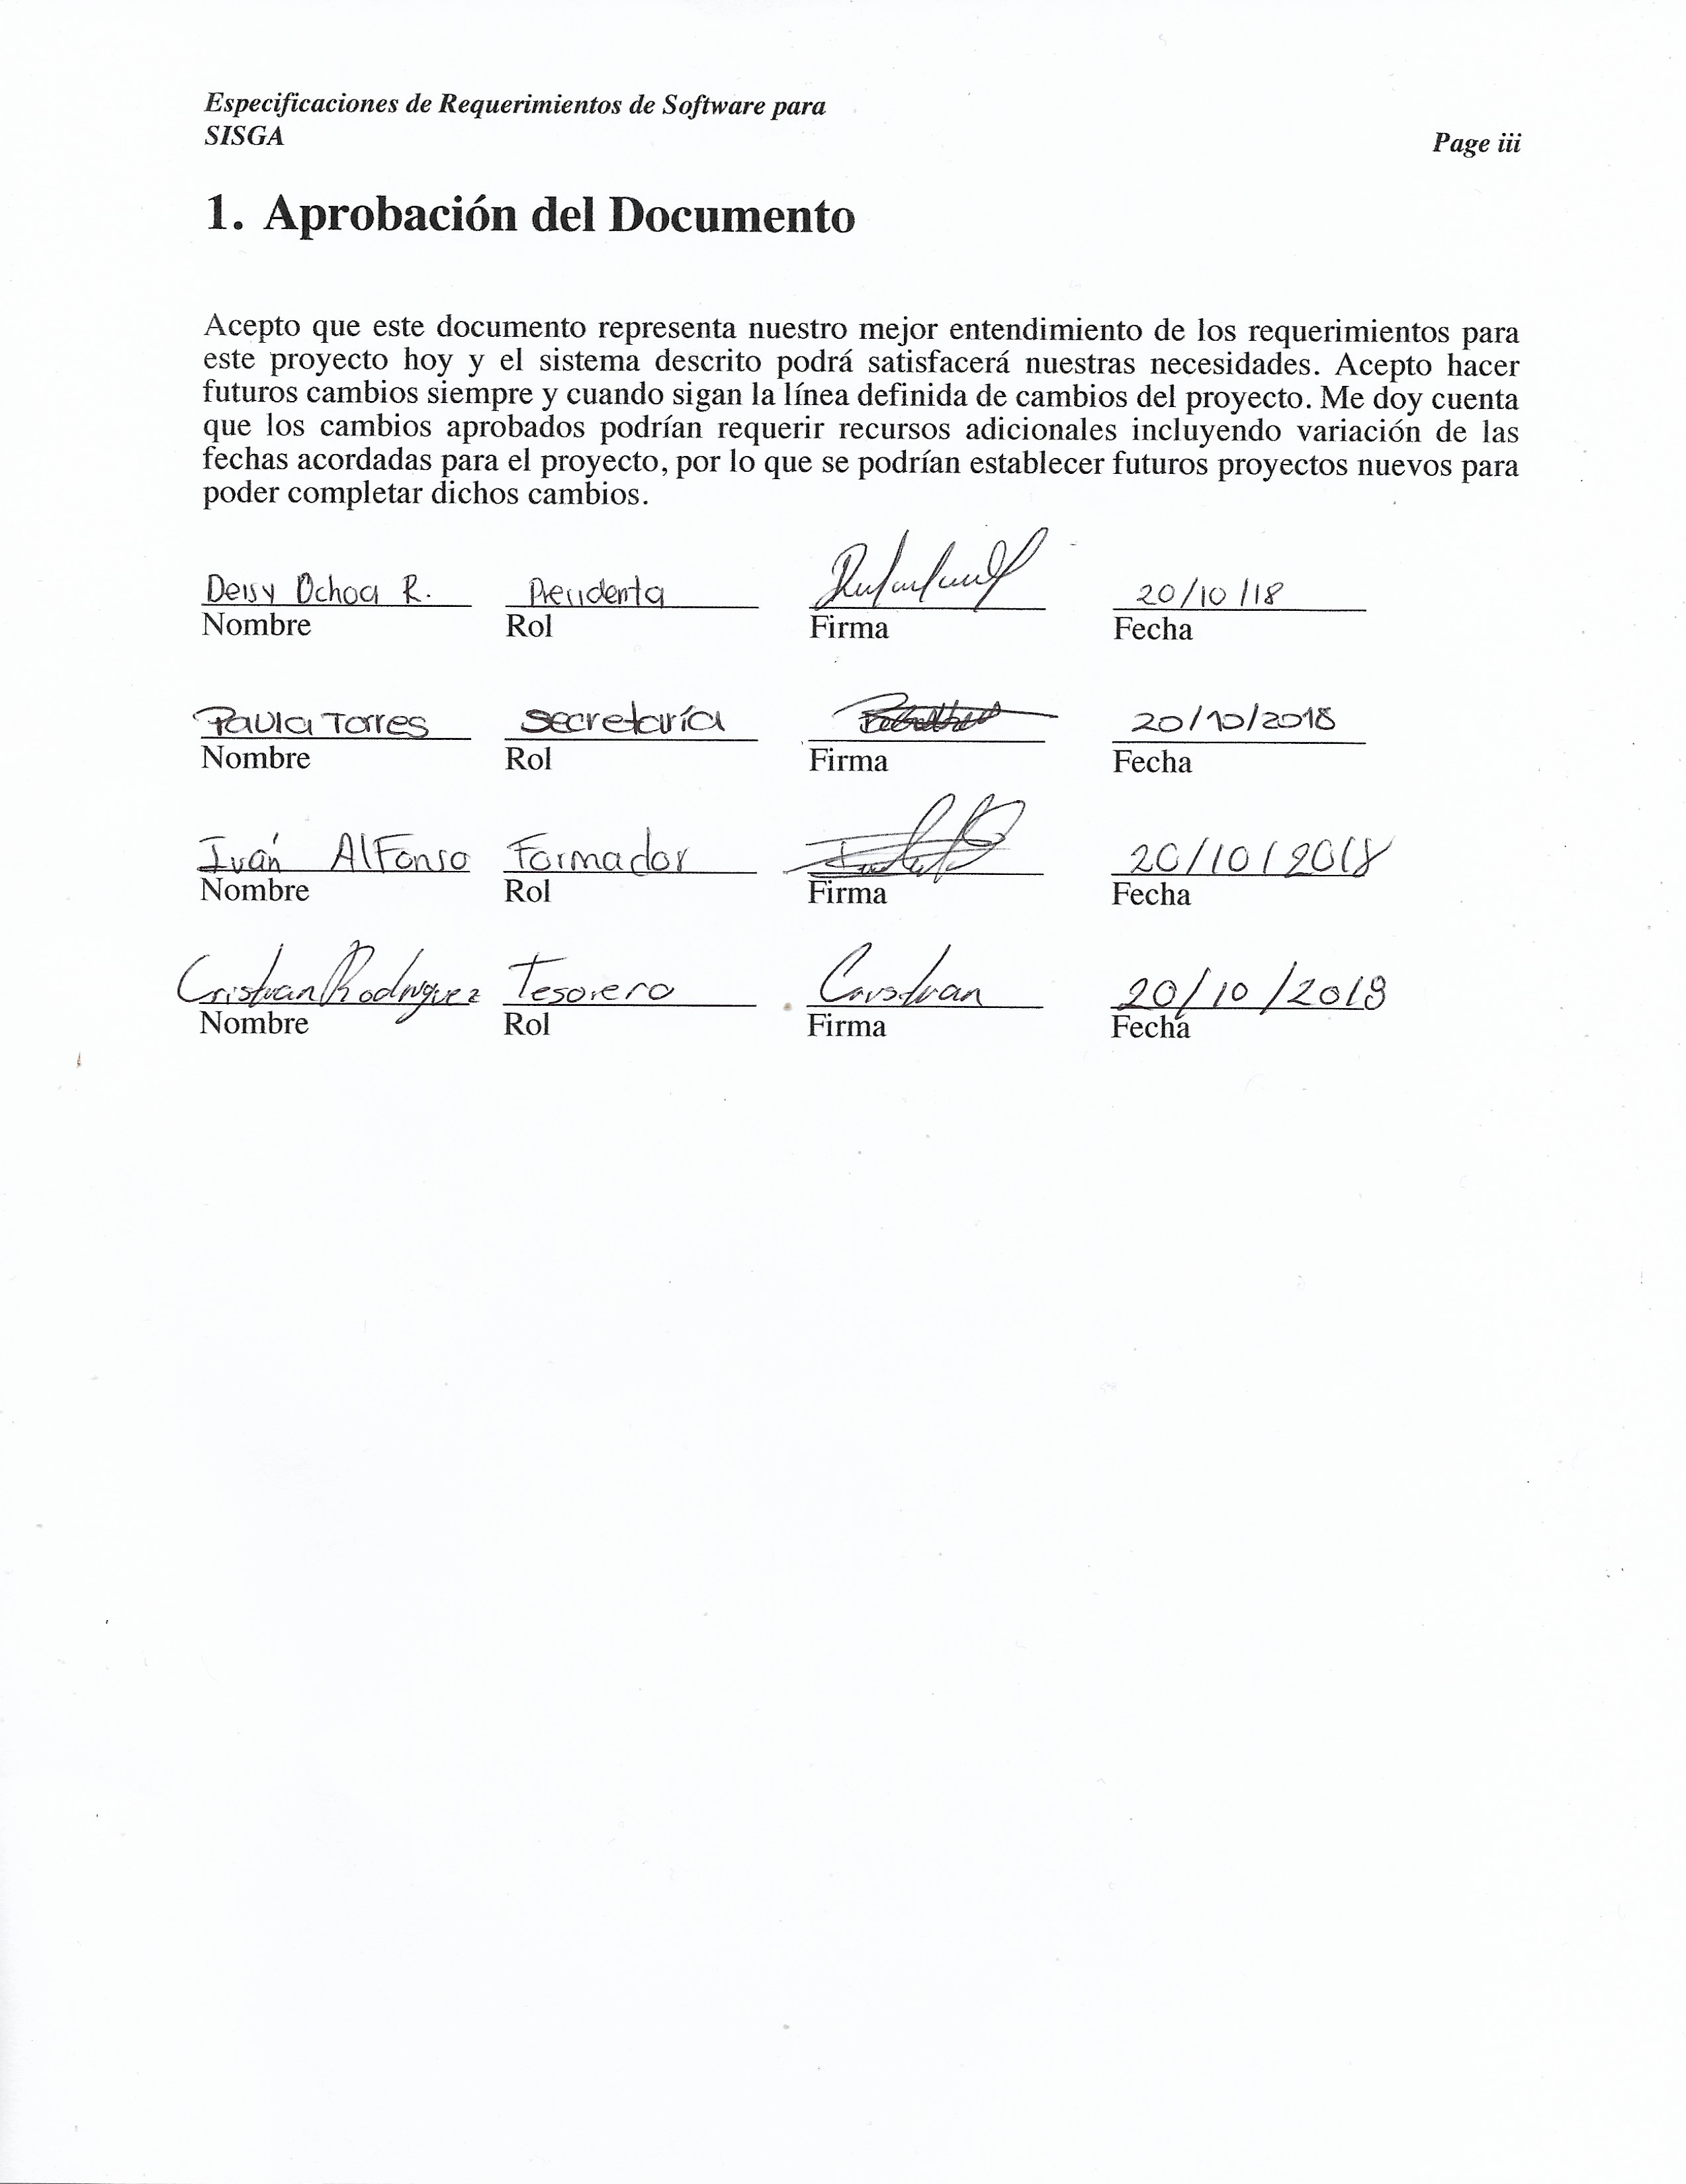 Especificaciones de Requerimientos de Software para
SISGA
Page iii
1. Aprobación del Documento
Acepto que este documento representa nuestro mejor entendimiento de los requerimientos para
este proyecto hoy y el sistema descrito podrá satisfacerá nuestras necesidades. Acepto hacer
futuros cambios siempre y cuando sigan la línea definida de cambios del proyecto. Me doy cuenta
que los cambios aprobados podrían requerir recursos adicionales incluyendo variación de las
fechas acordadas para el proyecto, por lo que se podrían establecer futuros proyectos nuevos para
poder completar dichos cambios.
Deisy Ochoa R. Presidenta 20/10/18
Nombre Rol Firma Fecha
Paula Torres secretaría 20/10/2018
Nombre Rol Firma Fecha
Iván AlFonso Formador 20/10/2018
Nombre Rol Firma Fecha
Cristian Rodriguez Tesorero Cristian 20/10/2018
Nombre Rol Firma Fecha